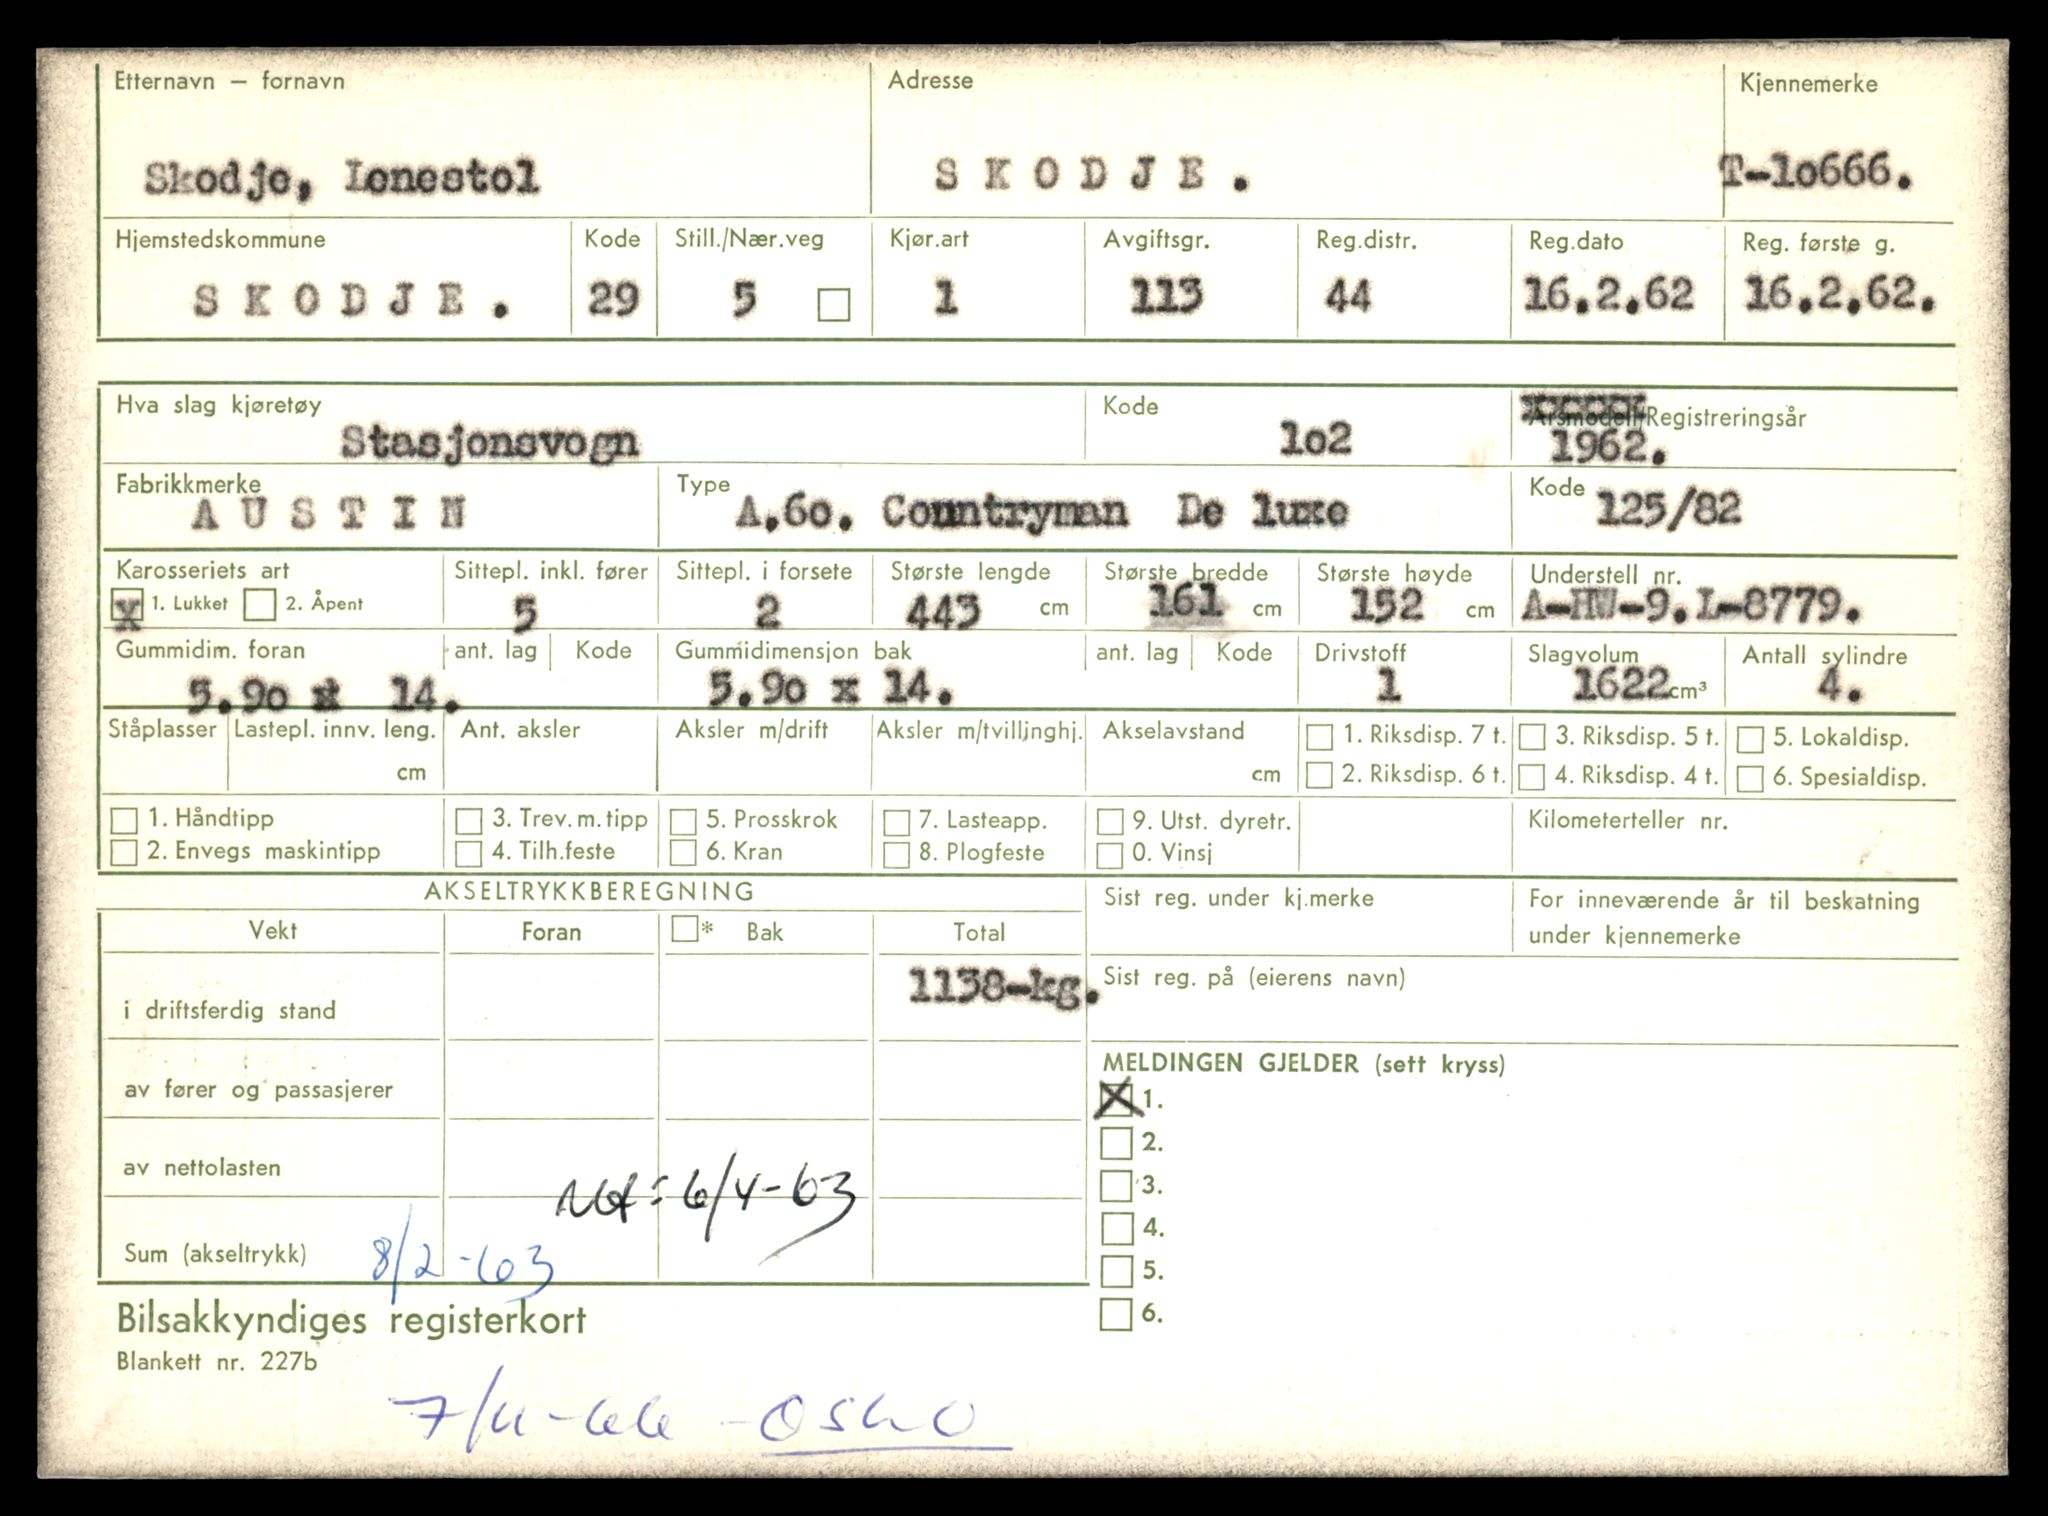 Etternavn — fornavn Adresse Kjennemerke
Skodje, Lenestol S K O D J E . T-10666.
Hjemstedskommune Kode Still./Nær.veg Kjør.art Avgiftsgr. Reg.distr. Reg.dato Reg. første g.
S K O D J E . 29 5 1 113 44 16.2.62 16.2.62.
Hva slag kjøretøy Kode Årsmodell/Registreringsår
Stasjonsvogn 1o2 1962.
Fabrikkmerke Type Kode
A U S T I N A.6o. Countryman De luxe 125/82
Karosseriets art Sittepl. inkl. fører Sittepl. i forsete Største lengde Største bredde Største høyde Understell nr.
x 1. Lukket 2. Åpent 5 2 443 cm 161 cm 152 cm A-HW-9.L-8779.
Gummidim. foran ant. lag Kode Gummidimensjon bak ant. lag Kode Drivstoff Slagvolum Antall sylindre
5.9o x 14. 5.9o x 14. 1 1622 cm³ 4.
Ståplasser Lastepl. innv. leng. Ant. aksler Aksler m/drift Aksler m/tvillinghj. Akselavstand 1. Riksdisp. 7 t. 3. Riksdisp. 5 t. 5. Lokaldisp.
cm cm 2. Riksdisp. 6 t. 4. Riksdisp. 4 t. 6. Spesialdisp.
1. Håndtipp 3. Trev. m. tipp 5. Prosskrok 7. Lasteapp. 9. Utst. dyretr. Kilometerteller nr.
2. Envegs maskintipp 4. Tilh.feste 6. Kran 8. Plogfeste 0. Vinsj
AKSELTRYKKBEREGNING Sist reg. under kj.merke For inneværende år til beskatning
Vekt Foran * Bak Total under kjennemerke
1138-kg. Sist reg. på (eierens navn)
i driftsferdig stand
MELDINGEN GJELDER (sett kryss)
av fører og passasjerer X 1.
2.
av nettolasten 3.
6/4-63
4.
Sum (akseltrykk) 8/2-63
5.
Bilsakkyndiges registerkort 6.
Blankett nr. 227b
7/11-66 - OSLO